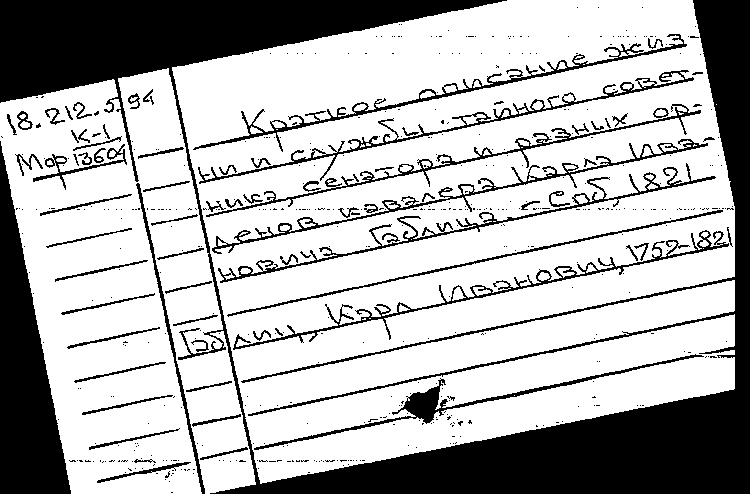 18.212.5.94
К-1
Мор 13604
Краткое описание жиз-
ни и службы тайного совет-
ника, сенатора и разных ор-
денов кавалера Карла Ива-
новича Габлица. – Спб, 1821
Габлиц, Карл Иванович, 1752-1821